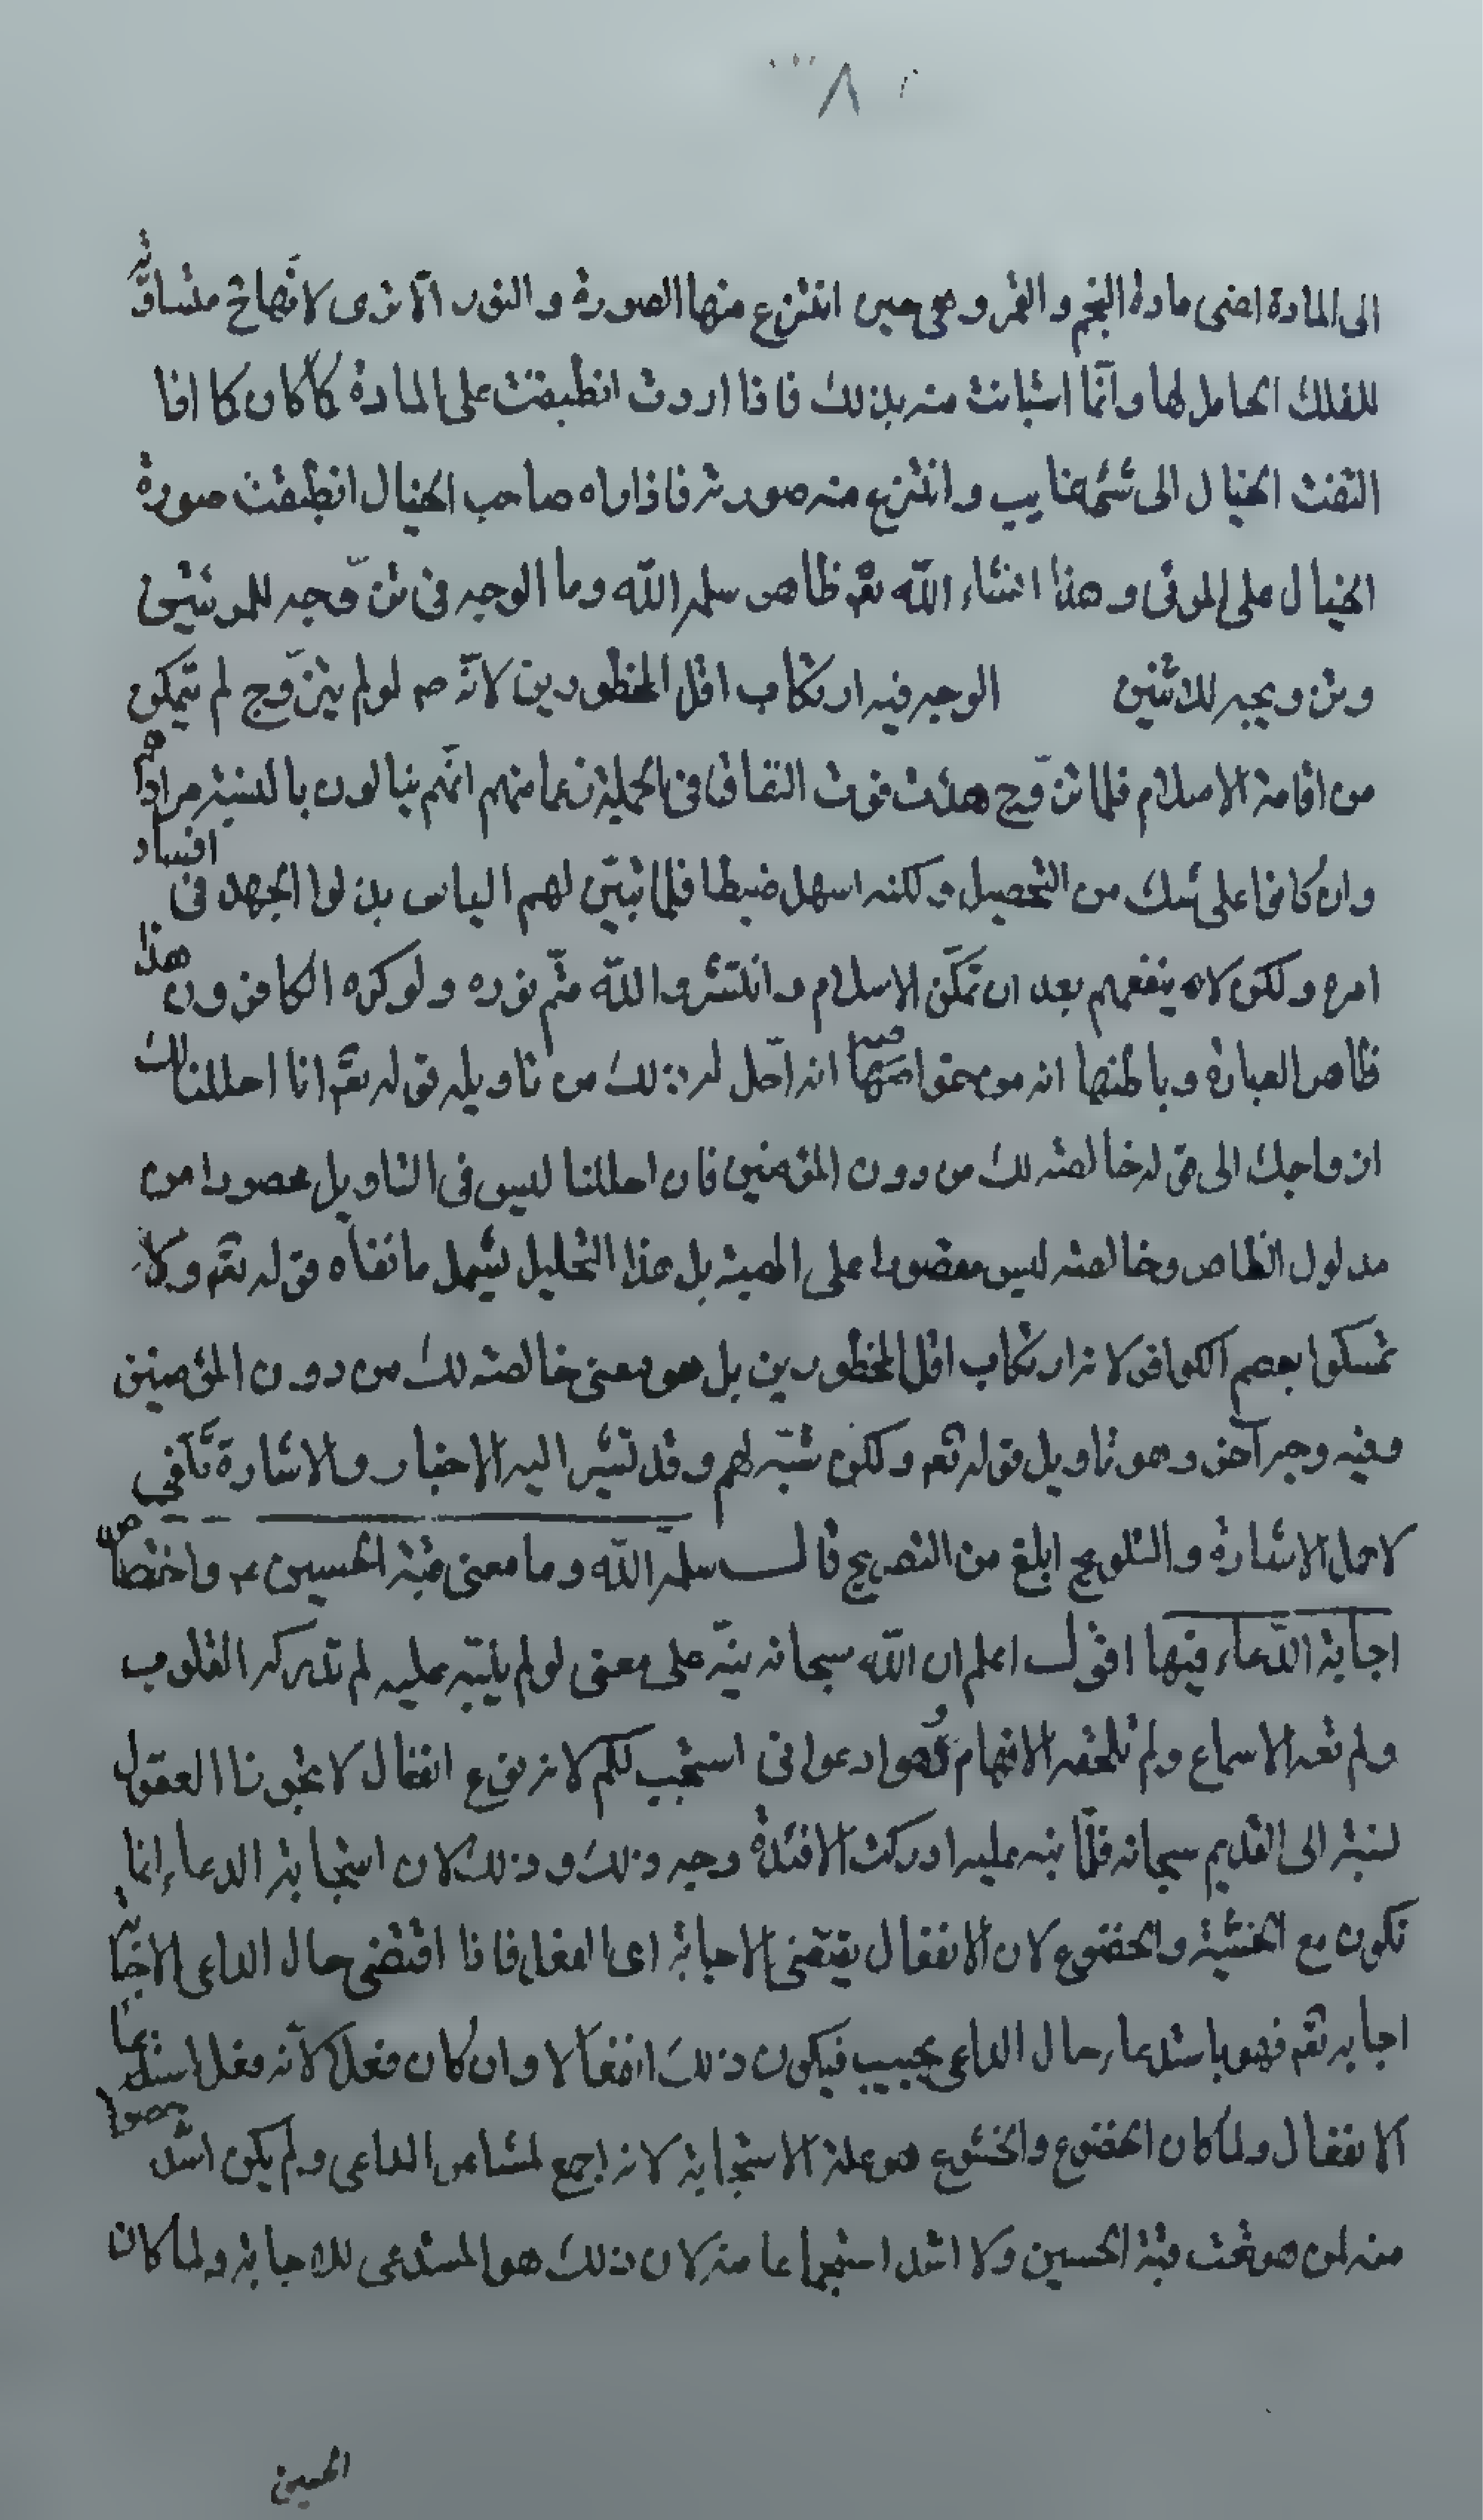 ٨
الى المادة اعنى مادة النجم والقمر وهى حين انتزع منها الصورة والنور الا ترى لانهاح متساوقة
للفلك الحامل لها وانّما استبانت منه بذلك فاذا اردت انطبقت على المادة كما كان كما اذا
التفت الخيال الى شئ غايب وانتزع منه صورته فاذا راه صاحب الخيال انطبقت صورة
الخيال على المرئى وهذا انشاء الله تعم ظاهر سلمه الله وما الوجه فى تزوّجه للمرئتين
وتزويجه للاثنين الوجه فيه ارتكاب اقل المحظورين لانّه ص لو لم يتزوّج لم يتمكن
من اقامة الاسلام فلما تزوّج هدئت فوت النفاق فى الجملة زعما منهم انهم ينالون بالنسبة مرادهم
وان كانوا على شك من التحصيل ولكنه اسهل ضبطا فلما تبيّن لهم الياس بذلوا الجهد فى افساد
امره ولكن لا ينفعهم بعد ان تمكّن الاسلام وانتشر والله متمّ نوره ولو كره الكافرون هذا
ظاهر العبارة وباطنها انه انه احّل له ذلك من تاويله قوله تعم انا احللنا لك
ازواجك الى قوله خالصة لك من دون المؤمنين فان احللنا ليس فى التاويل محصورا من
مدلول الظاهر وخالصة ليس مقصورا على الهبة بل هذا التحليل يشمل ما نفاه قوله تعم ولا
تمسكوا بعصم الكوافر لا نه ارتكاب اقل المحظورين بل هو معنى خالصة لك من دون المؤمنين
وفيه وجه آخر وهو تاويل قوله تعم ولكن شبّه لهم وقد تشير اليه الاخبار والاشارة تكفي
لاهل الاشارة والتلويح ابلغ من التصريح قال سلمه الله وما معنى قبة الحسين ع واختصاص
اجابة الدّعاء فيها اقول اعلم ان الله سبحانه نبّه على معنى لو لم ينبّه عليه لم تدركه القلوب
ولم تعه الاسماع ولم تلحقه الافهام وهو ادعوانى استجب لكم لانه نوع انفعال لا تجوّزنا العقول
لنسبته الى القديم سبحانه فلمّا نبه عليه ادركت الافئدة وجه ذلك وذلك لان استجابة الدعاء انما
تكون مع الخشية والخضوع لان الانفعال يقتضى الاجابة اى الفعل فاذا اقتضى حال الداعى الاجابة
اجابه تعم فهو باستدعاء حال الداعى يجيب فيكون ذلك انفعالا وان كان فعلا لانه فعل استدعاء
الانفعال ولما كان الخضوع والخشوع هو علة الاستجابة لانه اجمع لمشاعر الداعى ولم يكن اشد خضوعا
منه لمن هو تحت قبة الحسين ولا اشد استجماعا منه لان ذلك هو المستدعى للاجابة ولما كان
الحسين